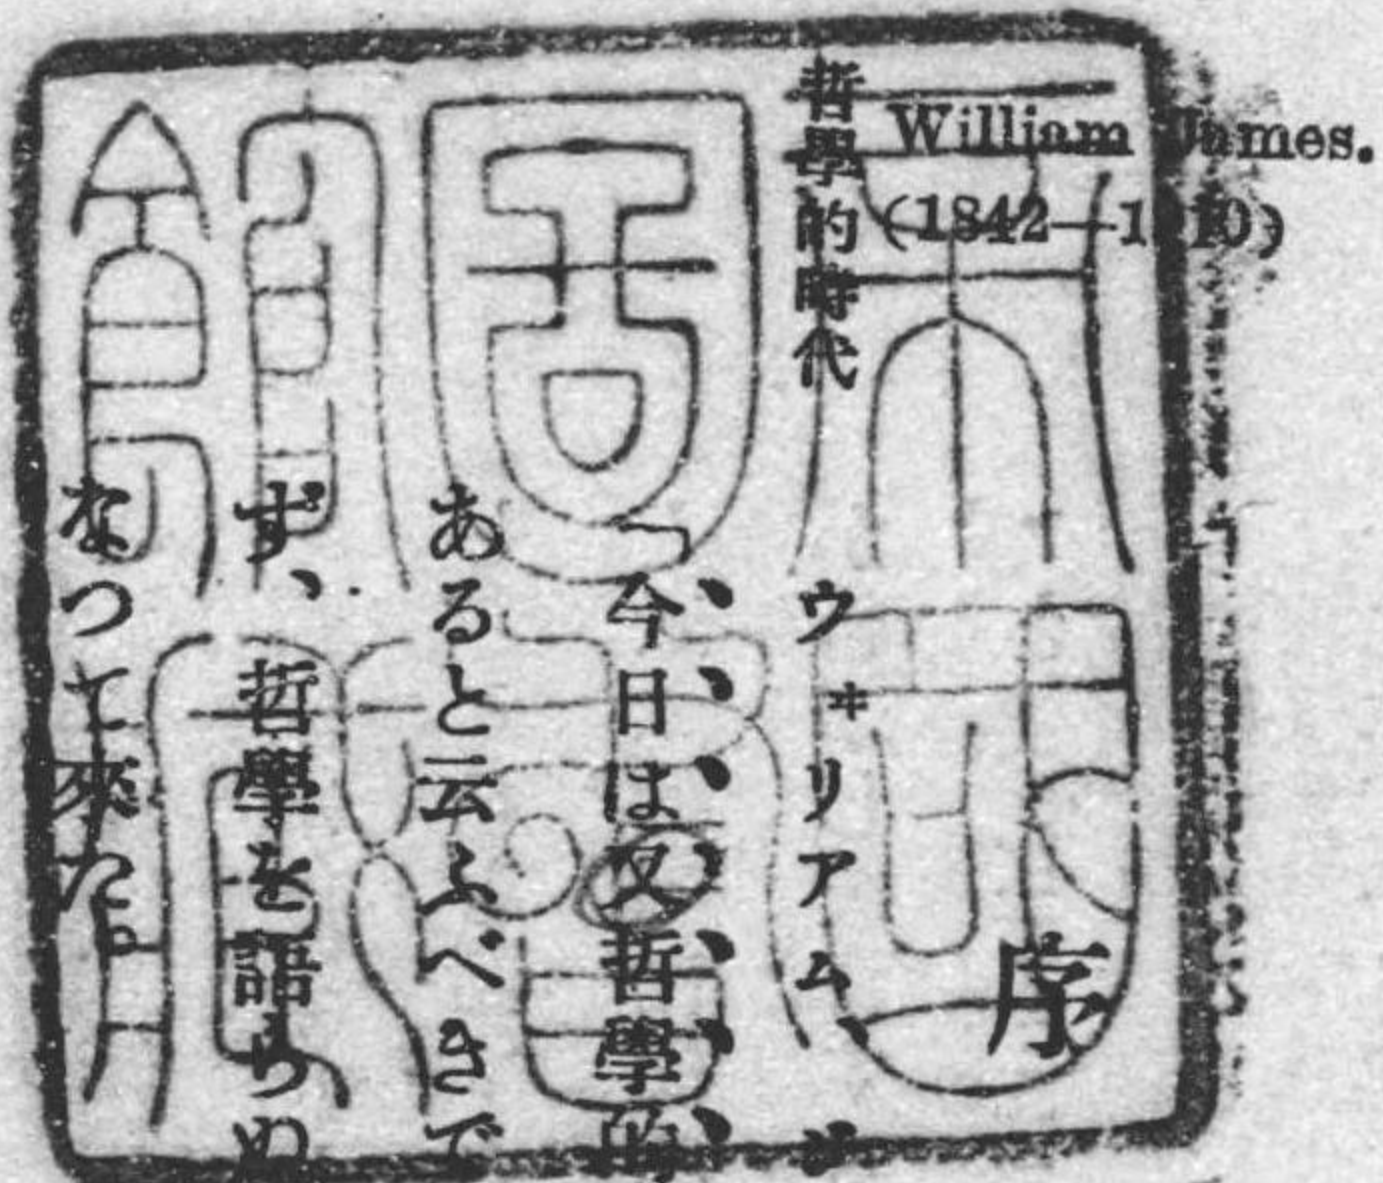 William James.
(1842—1910)
哲學的時代
序
ウヰリアム、ジ
「今日は又哲學的
あると云ふべきで
ず、哲學を語らぬ
なつて來た